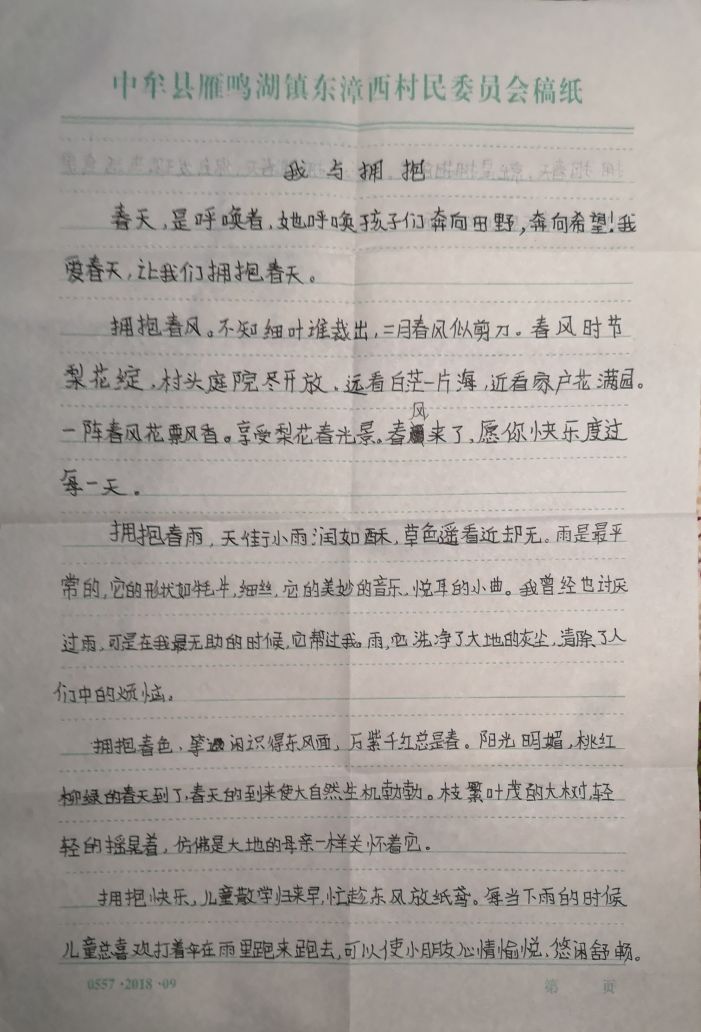 中牟县雁鸣湖镇东漳西村民委员会稿纸
我与拥抱
春天,是呼唤者,她呼唤孩子们奔向田野,奔向希望!我
爱春天,让我们拥抱春天。
拥抱春风。不知细叶谁裁出,二月春风似剪刀。春风时节
梨花绽,村头庭院尽开放,远看白茫一片海,近看家户花满园。
一阵春风花飘香。享受梨花春光景。春风来了,愿你快乐度过
每一天。
拥抱春雨,天街小雨润如酥,草色遥看近却无。雨是最平
常的,它的形状如牦牛,细丝,它的美妙的音乐,悦耳的小曲。我曾经也讨厌
过雨,可是在我最无助的时候,它帮过我。雨,它洗净了大地的灰尘,清除了人
们中的烦恼。
拥抱春色,等闲识得东风面,万紫千红总是春。阳光明媚,桃红
柳绿的春天到了,春天的到来使大自然生机勃勃。枝繁叶茂的大树,轻
轻的摇晃着,仿佛是大地的母亲一样关怀着它。
拥抱快乐,儿童散学归来早,忙趁东风放纸鸢。每当下雨的时候
儿童总喜欢打着伞在雨里跑来跑去,可以使小朋友心情愉悦,悠闲舒畅。
0557·2018·09 第 页